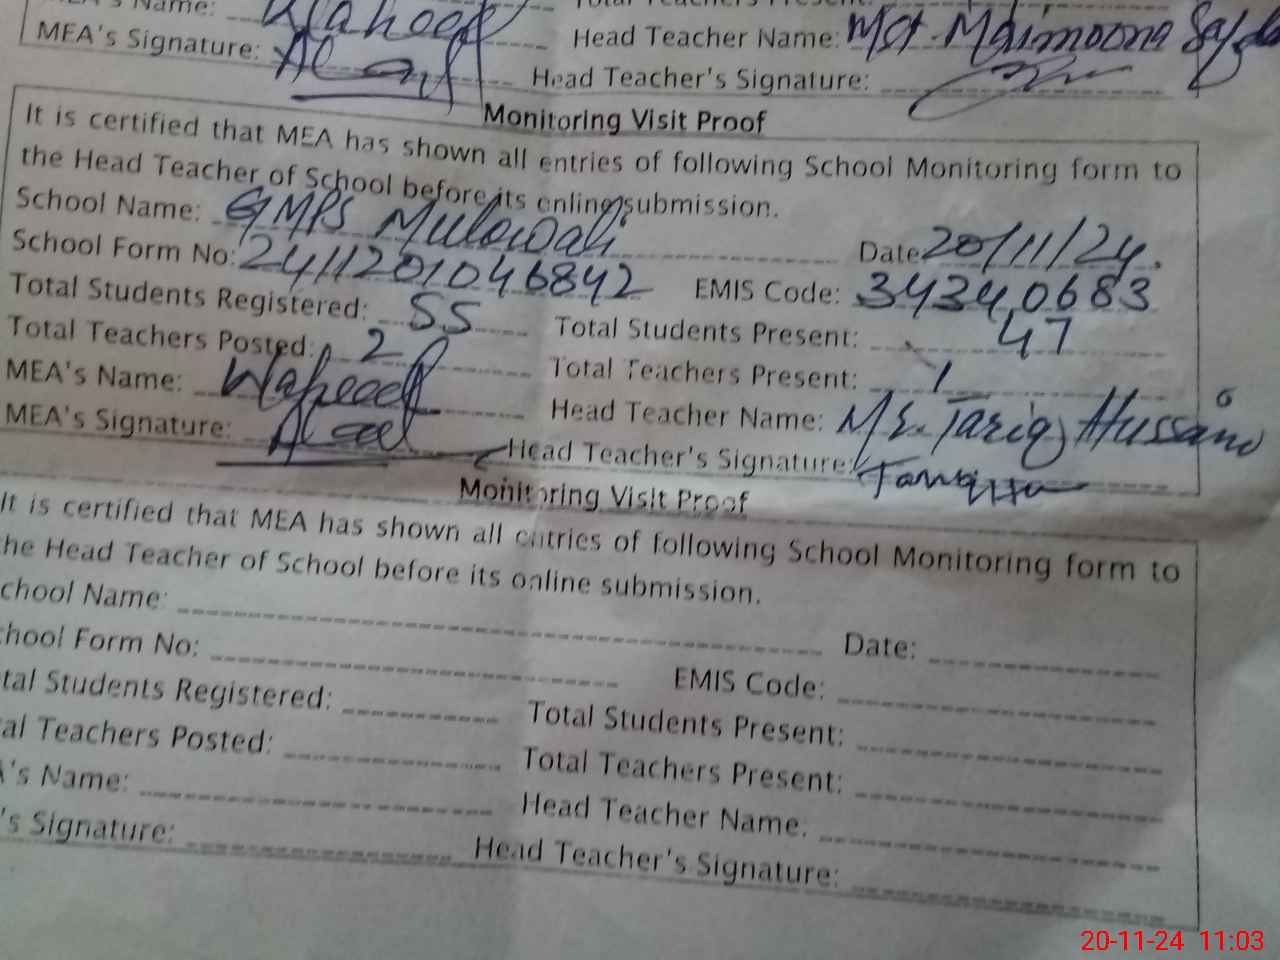 MEA's Name: Waheed
MEA's Signature:
Head Teacher Name: Mst. Maimoona
Head Teacher's Signature:
Monitoring Visit Proof
It is certified that MEA has shown all entries of following School Monitoring form to
the Head Teacher of School before its online submission.
School Name: GMPS Mulowali
Date 20/11/24.
School Form No: 2411201046842
EMIS Code: 34340683
Total Students Registered: 55
Total Students Present: 47
Total Teachers Posted: 2
Total Teachers Present: 1
MEA's Name: Waheed
Head Teacher Name: Mr. Tariq Hussain
MEA's Signature:
Head Teacher's Signature:
Monitoring Visit Proof
It is certified that MEA has shown all entries of following School Monitoring form to
the Head Teacher of School before its online submission.
chool Name:
Date:
hool Form No:
EMIS Code:
tal Students Registered:
Total Students Present:
al Teachers Posted:
Total Teachers Present:
A's Name:
Head Teacher Name:
's Signature:
Head Teacher's Signature:
20-11-24 11:03